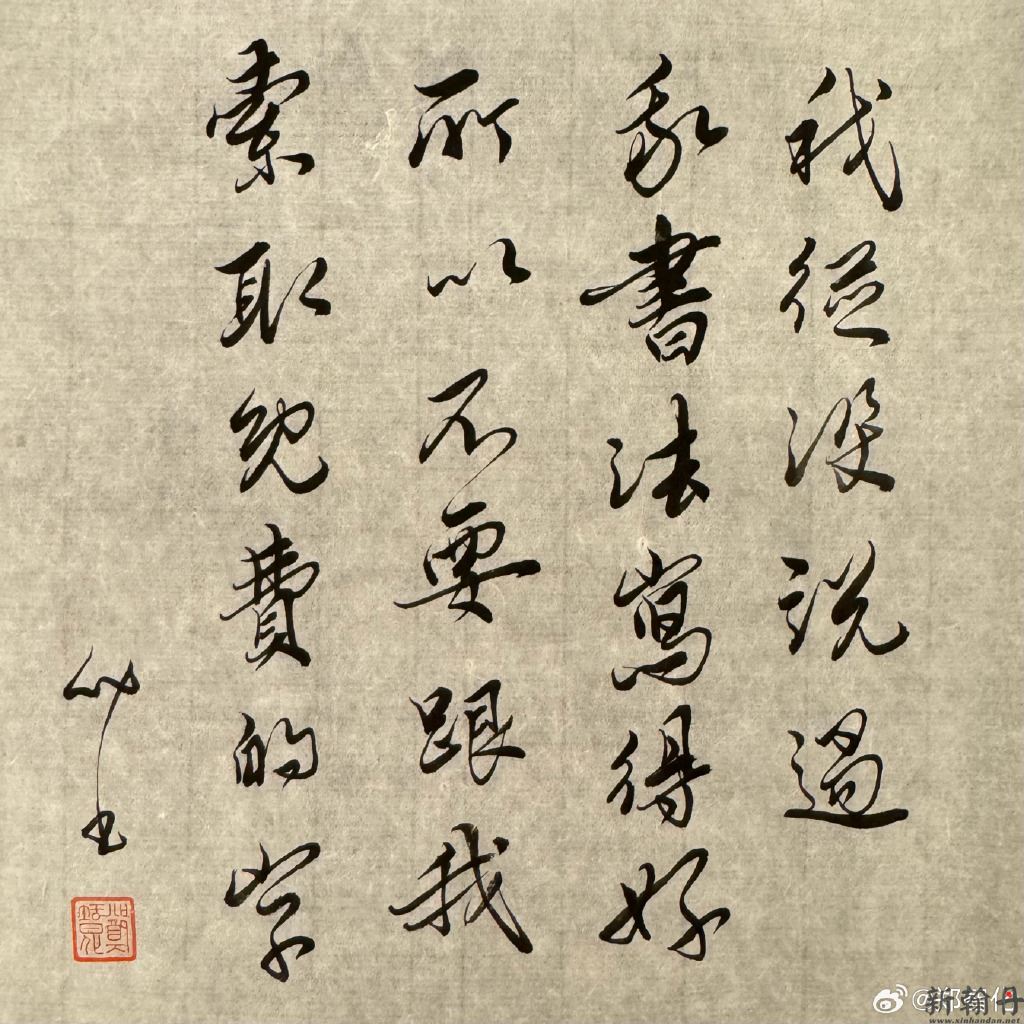 我從没說過
我書法寫得好
所以不要跟我
索取免費的字
新翰丹
www.xinhandan.net